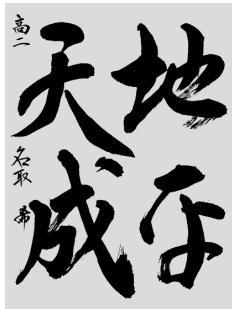 地平
天成
高二 名取 希